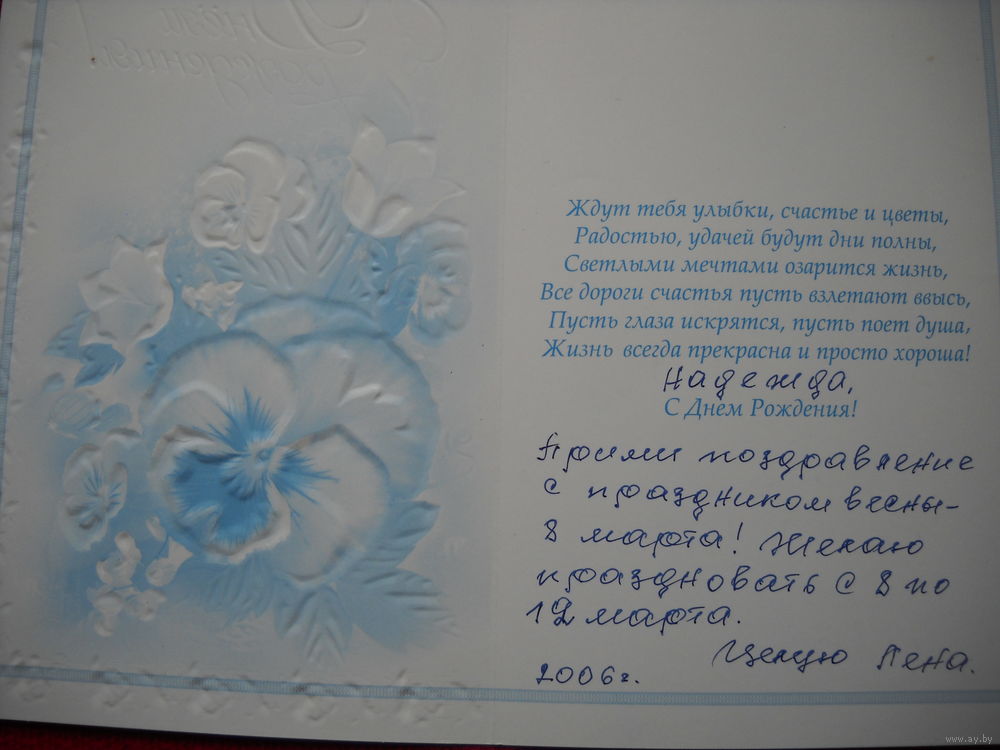 С Днём
Рождения!
Ждут тебя улыбки, счастье и цветы,
Радостью, удачей будут дни полны,
Светлыми мечтами озарится жизнь,
Все дороги счастья пусть взлетают ввысь,
Пусть глаза искрятся, пусть поет душа,
Жизнь всегда прекрасна и просто хороша!
Надежда,
С Днем Рождения!
Прими поздравление
с праздником весны-
8 марта! Желаю
праздновать с 8 по
12 марта.
Целую Лена.
2006г.
www.ay.by